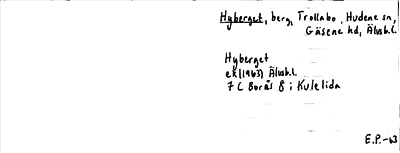 Hyberget, berg, Trollabo, Hudene sn,
Gäsene hd, Älvsb.l.
Hyberget
ek(1963) Älvsb.l.
7 C Borås 8 i Kulelida
E.P.-63